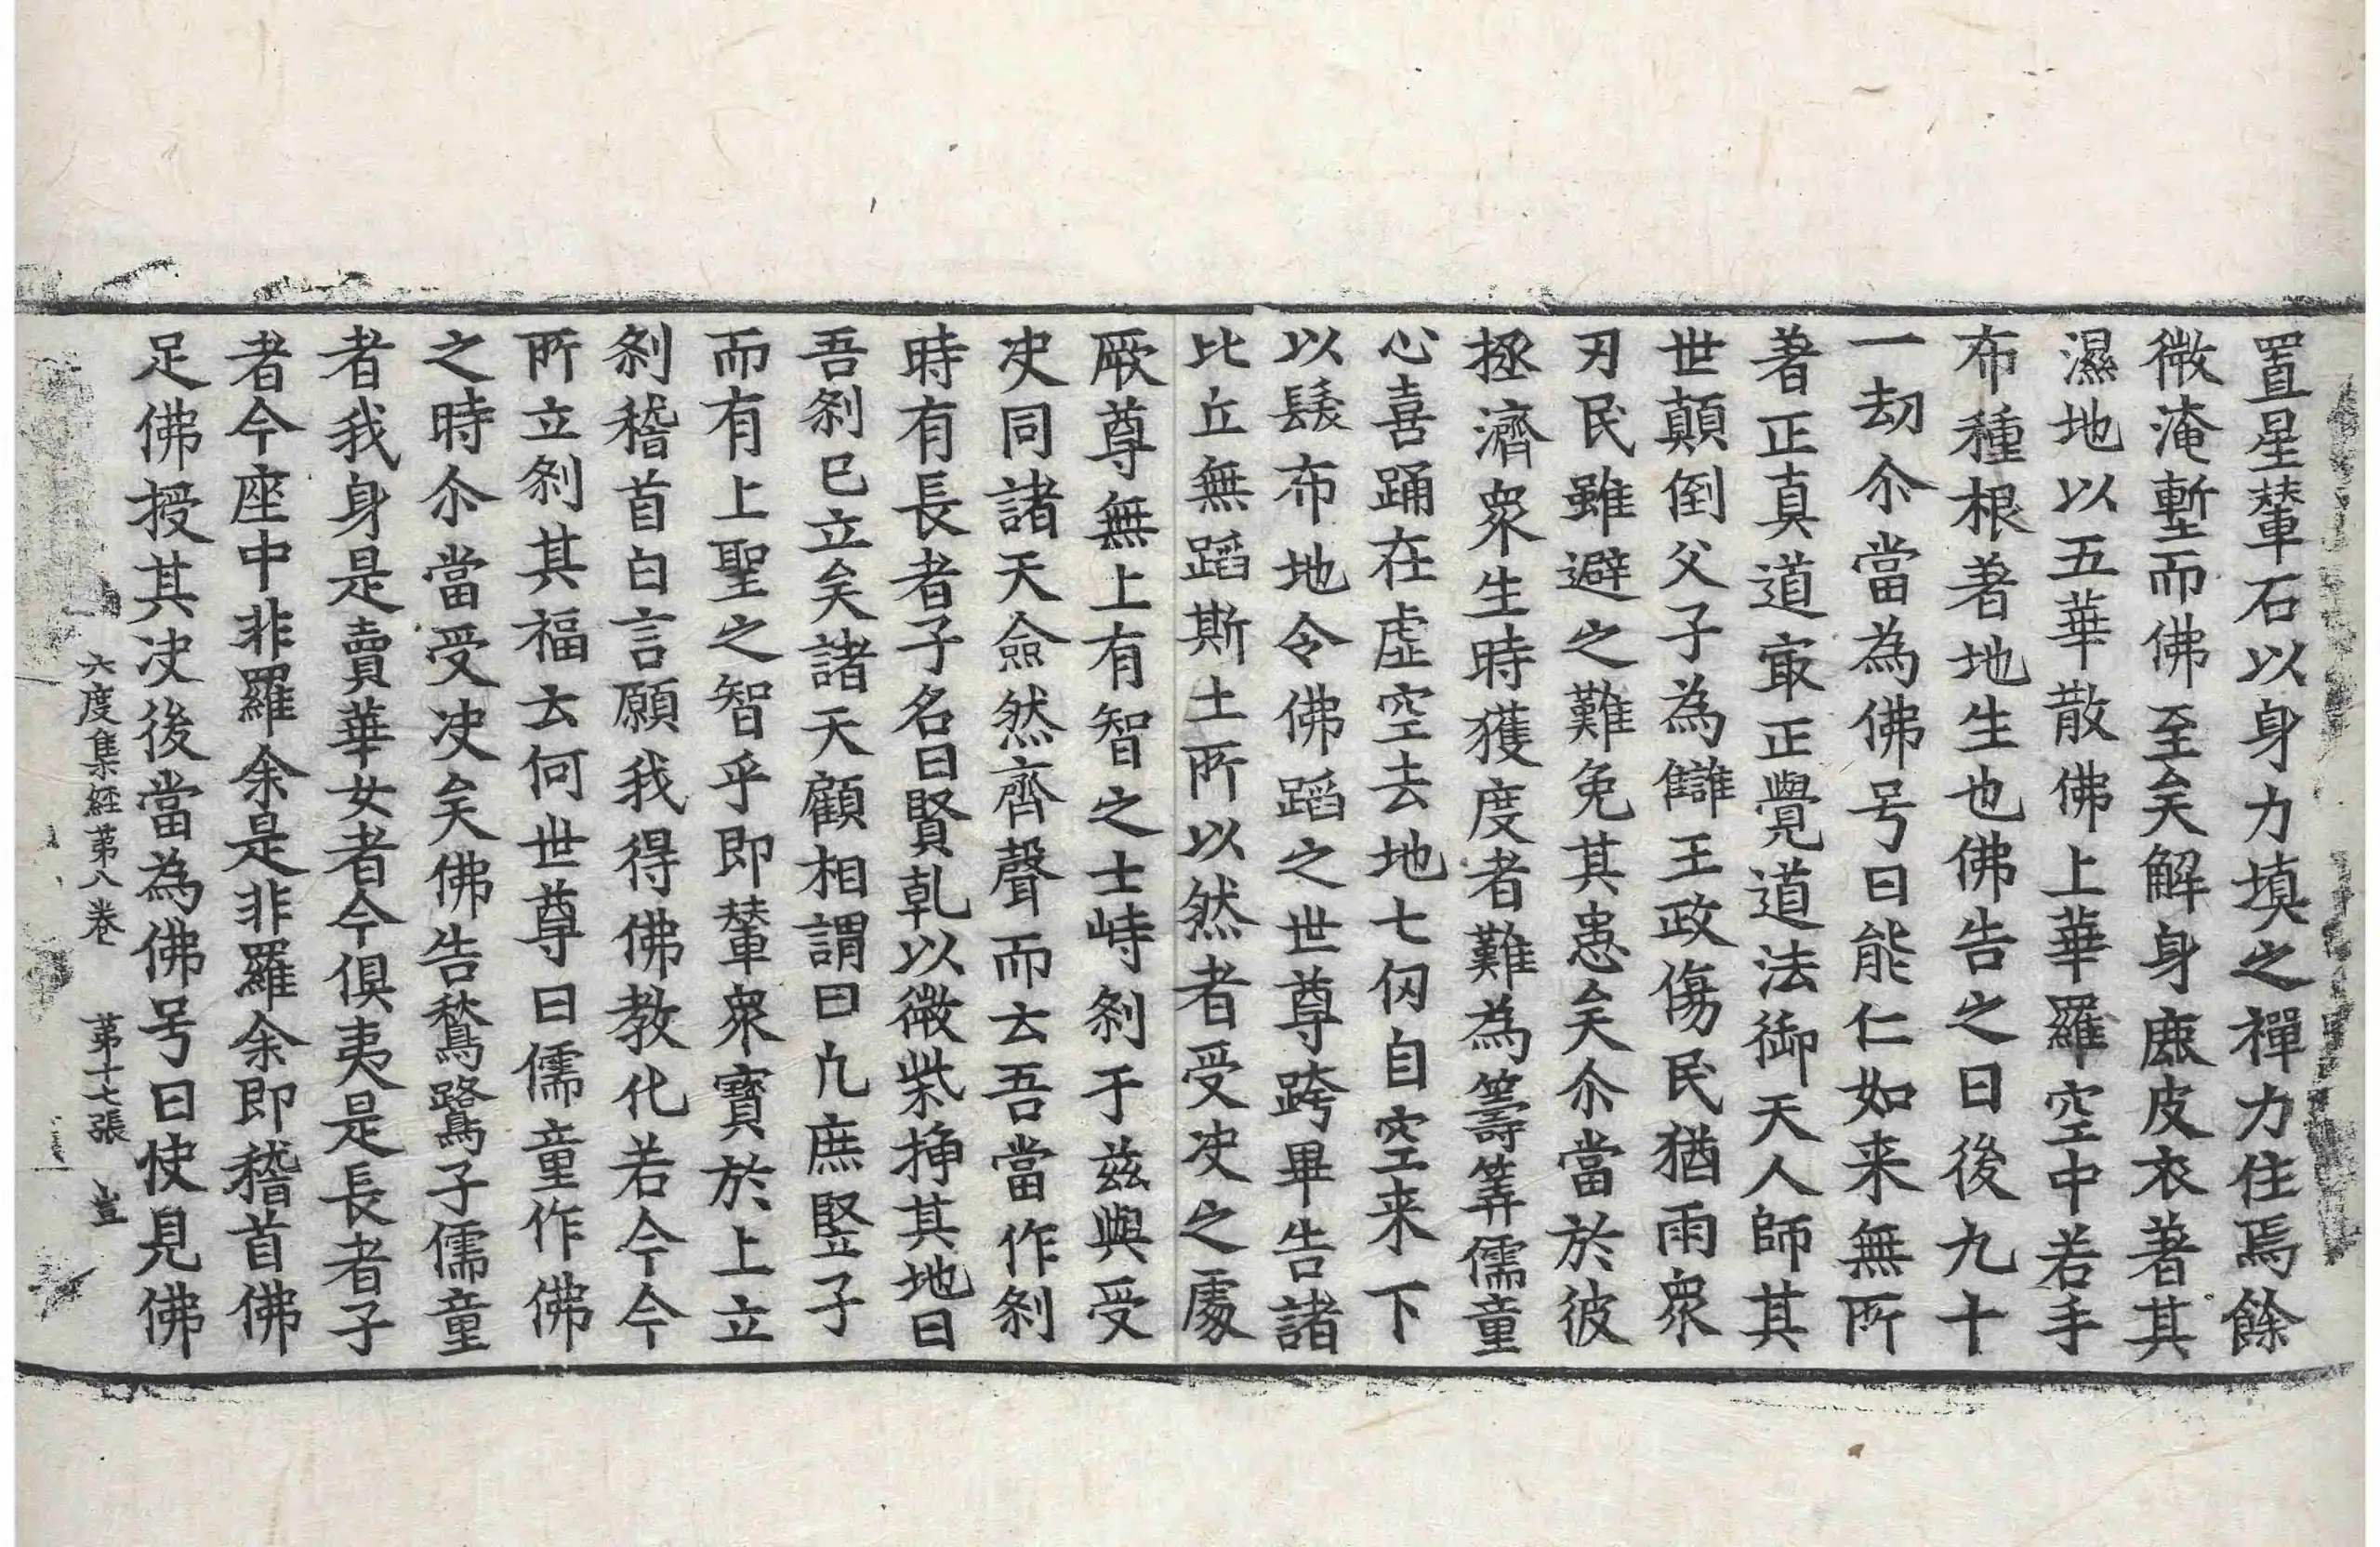 置星輦石以身力填之禪力住焉餘
微淹塹而佛至矣解身鹿皮衣著其
濕地以五華散佛上華羅空中若手
布種根著地生也佛告之曰後九十
一劫尒當為佛号曰能仁如来無所
著正真道㝡正覺道法御天人師其
世顛倒父子為讎王政傷民猶雨衆
刃民雖避之難免其患矣尒當於彼
拯濟衆生時獲度者難為籌筭儒童
心喜踊在虛空去地七仞自空来下
以髮布地令佛蹈之世尊跨畢告諸
比丘無蹈斯土所以然者受决之處
厥尊無上有智之士峙剎于兹與受
决同諸天僉然齊聲而云吾當作剎
時有長者子名曰賢乹以微柴揷其地曰
吾剎已立矣諸天顧相謂曰凢庶竪子
而有上聖之智乎即輦衆寶於上立
剎稽首白言願我得佛教化若今今
所立剎其福云何世尊曰儒童作佛
之時尒當受决矣佛告鶖鷺子儒童
者我身是賣華女者今俱夷是長者子
者今座中非羅余是非羅余即稽首佛
足佛授其决後當為佛号曰快見佛
六度集經苐八卷　苐十七張　豈